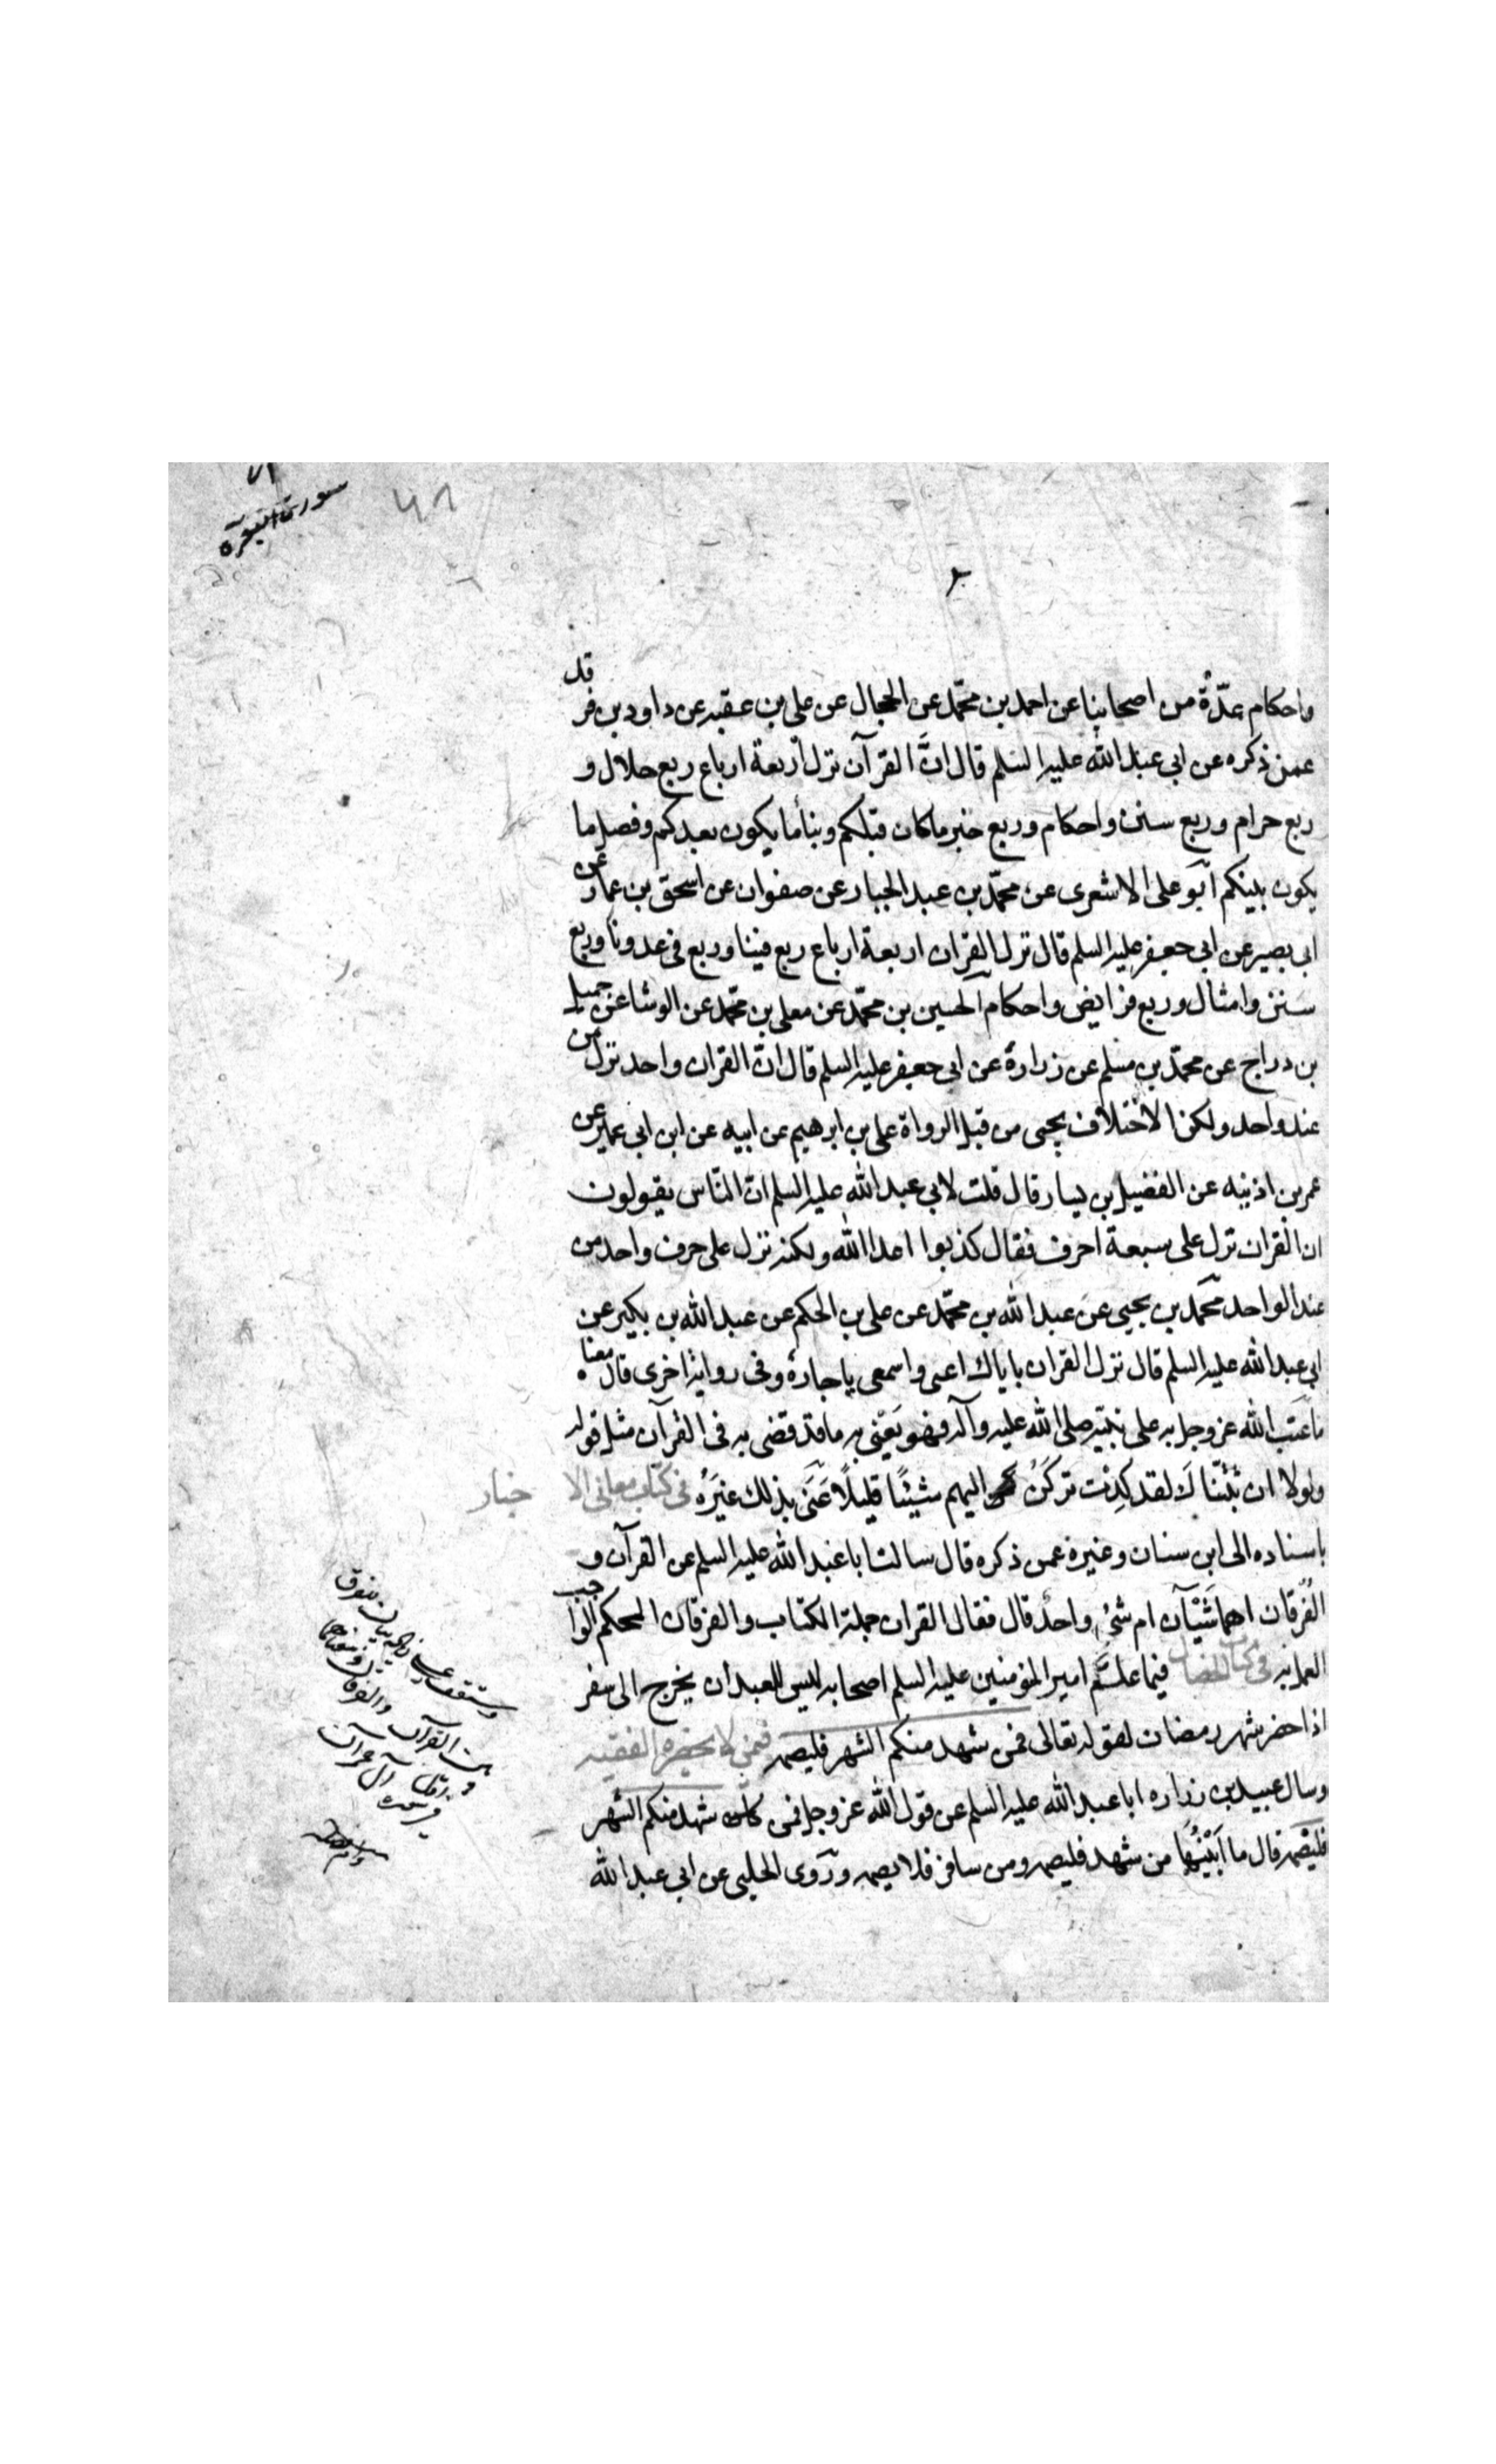 ٧١
سورة البقرة
واحكام عدّةٌ من اصحابنا عن احمد بن محمّد عن الحجال عن علي بن عقبه عن داود بن فرقد
عمن ذكره عن ابي عبد الله عليه السلم قال انّ القرآن نزل اربعة ارباع ربع حلال و
ربع حرام وربع سنن واحكام وربع خبر ما كان قبلكم ونبأ ما يكون بعدكم وفصل ما
يكون بينكم ابو علي الاشعرى عن محمّد بن عبد الجبار عن صفوان عن اسحق بن عمار عن
ابى بصير عن ابي جعفر عليه السلم قال نزل القران اربعة ارباع ربع فينا وربع في عدونا وربع
سنن وامثال وربع فرايض واحكام الحسين بن محمّد عن معلى بن محمّد عن الوشا عن جميل
بن دراج عن محمّد بن مسلم عن زرارة عن ابي جعفر عليه السلم قال انّ القران واحد نزل من
عند واحد ولكن الاختلاف يجىى من قبل الرواة علي بن ابرهيم عن ابيه عن ابن ابي عمير عن
عمر بن اذينه عن الفضيل بن يسار قال قلت لابي عبد الله عليه السلم انّ النّاس يقولون
ان القران نزل على سبعة احرف فقال كذبوا اعدا الله ولكنه نزل على حرف واحد من
عند الواحد محمّد بن يحيى عن عبد الله بن محمّد عن علي بن الحكم عن عبد الله بن بكير عن
ابي عبد الله عليه السلم قال نزل القران باياك اعنى واسمعى يا جارة وفى رواية اخرى قال معناه
ما عَتَب الله عز وجل به على نبيّه صلى الله عليه وآله فهو يَعْنى به ما قد قضى به فى القرآن مثل قوله
ولولا ان ثبّتناك لقد كِدْت تركَنُ اليهم شيئًا قليلًا عَنَى بذلك غيرَهُ في كتاب معانى الاخبار
باسناده الى ابن سنان وغيره عمن ذكره قال سالت ابا عبد الله عليه السلم عن القرآن و
الفُرقان اهما شَيْئآن ام شئ واحدٌ قال فقال القران جملة الكتاب والفرقان المحكم الواجب
العمل به في كتاب الخصال فيما علّم امير المؤمنين عليه السلم اصحابه ليس للعبد ان يخرج الى سفر
اذا حضر شهر رمضان لقوله تعالى فمن شهد منكم الشهر فليصمه فمن لا يحضره الفقيه
وسال عبيد بن زراره ابا عبد الله عليه السلم عن قول الله عز وجل فمن شهد منكم الشهر
فليصمه قال ما اَبْيَنَها من شهد فليصمه ومن سافر فلا يصمه ورَوى الحلبى عن ابي عبد الله